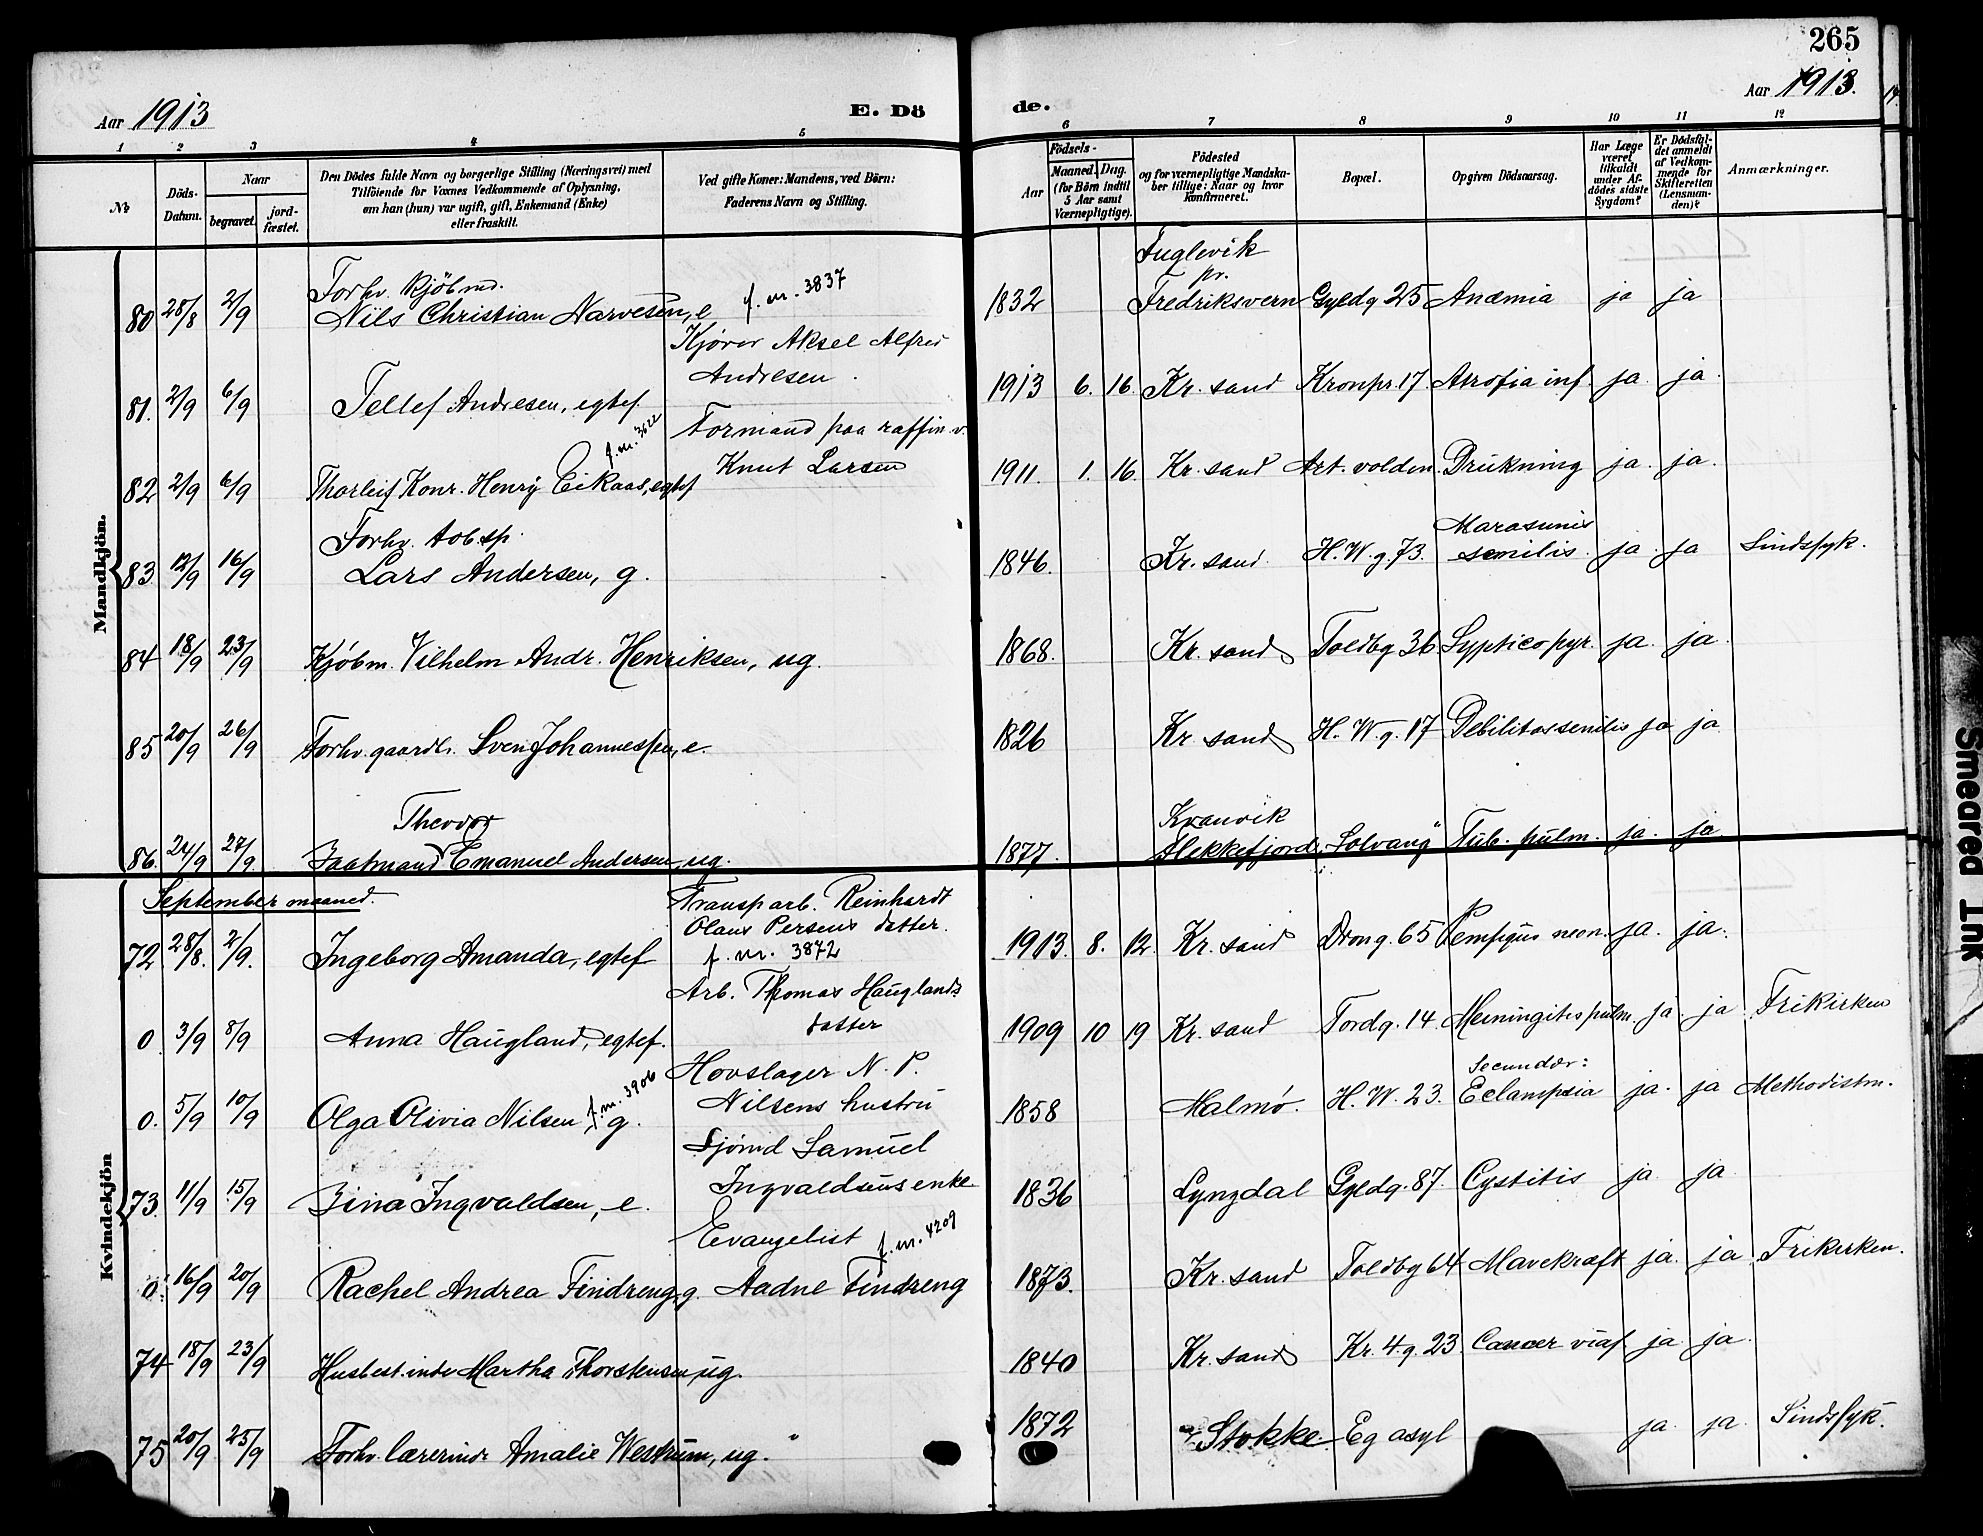 265
Aar 1913
E. Döde.
Aar 1913.
1 2 3 4 5 6 7 8 9 10 11 12
No
Döds-Datum.
Naar
begravet.
jord-fæstet.
Den Dödes fulde Navn og borgerlige Stilling (Næringsvei) med
Tilföiende for Voxnes Vedkommende af Oplysning,
om han (hun) var ugift, gift, Enkemand (Enke)
eller fraskilt.
Ved gifte Koner: Mandens, ved Börn:
Faderens Navn og Stilling.
Födsels-
Aar
Maaned. Dag.
(for Börn indtil
5 Aar samt
Værnepligtige).
Födested
og for værnepligtige Mandska-
ber tillige: Naar og hvor
konfirmeret.
Bopæl.
Opgiven Dödsaarsag.
Har Læge
været
tilkaldt
under Af-
dödes sidste
Sygdom?
Er Dödsfal-
det anmeldt
af Vedkom-
mende for
Skifteretten
(Lensman-
den)?
Anmærkninger.
Mandkjön.
80 28/8 2/9 Forhv. kjöbmd. Nils Christian Narvesen, e. f. nr. 3837 1832 Fuglevik pr. Fredriksvern Gyldg 25 Anæmia ja ja
81. 2/9 6/9 Tellef Andresen, egtef. Kjörer Aksel Alfred Andresen. 1913 6. 16. Kr. sand Kronpr. 17 Atrofia inf ja. ja.
82 2/9 6/9 Thorleif Konr. Henry Eikaas, egtef f. nr. 3622 Formand paa raffin.v. Knut Larsen 1911. 1. 16. Kr. sand Art. volden. Drukning ja. ja.
83 12/9 16/9 Forhv. tobsp. Lars Andersen, g. 1846. Kr. sand. H. W. g 73. Marasmus senilis. ja. ja Sindssyk.
84 18/9 23/9 Kjöbm. Vilhelm Andr. Henriksen, ug. 1868. Kr. sand Toldbg 36 ja. ja.
85 20/9 26/9 Forhv. gaardbr. Sven Johannessen, e. 1826 Kr. sand H. W. g. 17 Debilitas senilis ja ja.
86. 24/9 27/9. Baatmand Theodor Emanuel Andersen, ug. 1877. Flekkefjord. Solvang Tub. pulm. ja. ja
Kvindekjön
September maaned.
72 28/8. 2/9. Ingeborg Amanda, egtef Transp arb. Reinhardt Olaus Persens datter. f. nr. 3872 1913. 8. 12. Kr. sand Drong. 65 Pempigus neon. ja. ja.
0. 3/9 8/9 Anna Haugland, egtef. Arb. Thomas Hauglands datter 1909 10 19 Kr. sand Tordg. 14 Meiningitis pulm. ja. ja Frikirken
0. 5/9 10/9 Olga Olivia Nilsen, g. f. nr. 3906 Hovslager N. P. Nilsens hustru 1858 Malmö. H. W. 23. Secundær: Eclampsia ja. ja Methodistm.
73. 11/9 15/9 Zina Ingvaldsen, e. Sjömd Samuel Ingvaldsens enke 1836 Lyngdal Gyldg. 87. Cystitis ja ja
0. 16/9 20/9 Rachel Andrea Findreng, g. Evangelist f. nr. 4209 Aadne Findreng 1873. Kr. sand Toldbg 64 Mavekræft ja. ja Frikirken.
74 18/9 23/9 Husbest.inde Martha Thorstensen, ug. 1840 Kr. sand Kr. 4 g. 23 Cancer ja ja.
75 20/9 25/9 Forhv. lærerinde Amalie Westrum, ug. 1872 Stokke Eg asyl ja. ja Sindssyk.
Smeared Ink